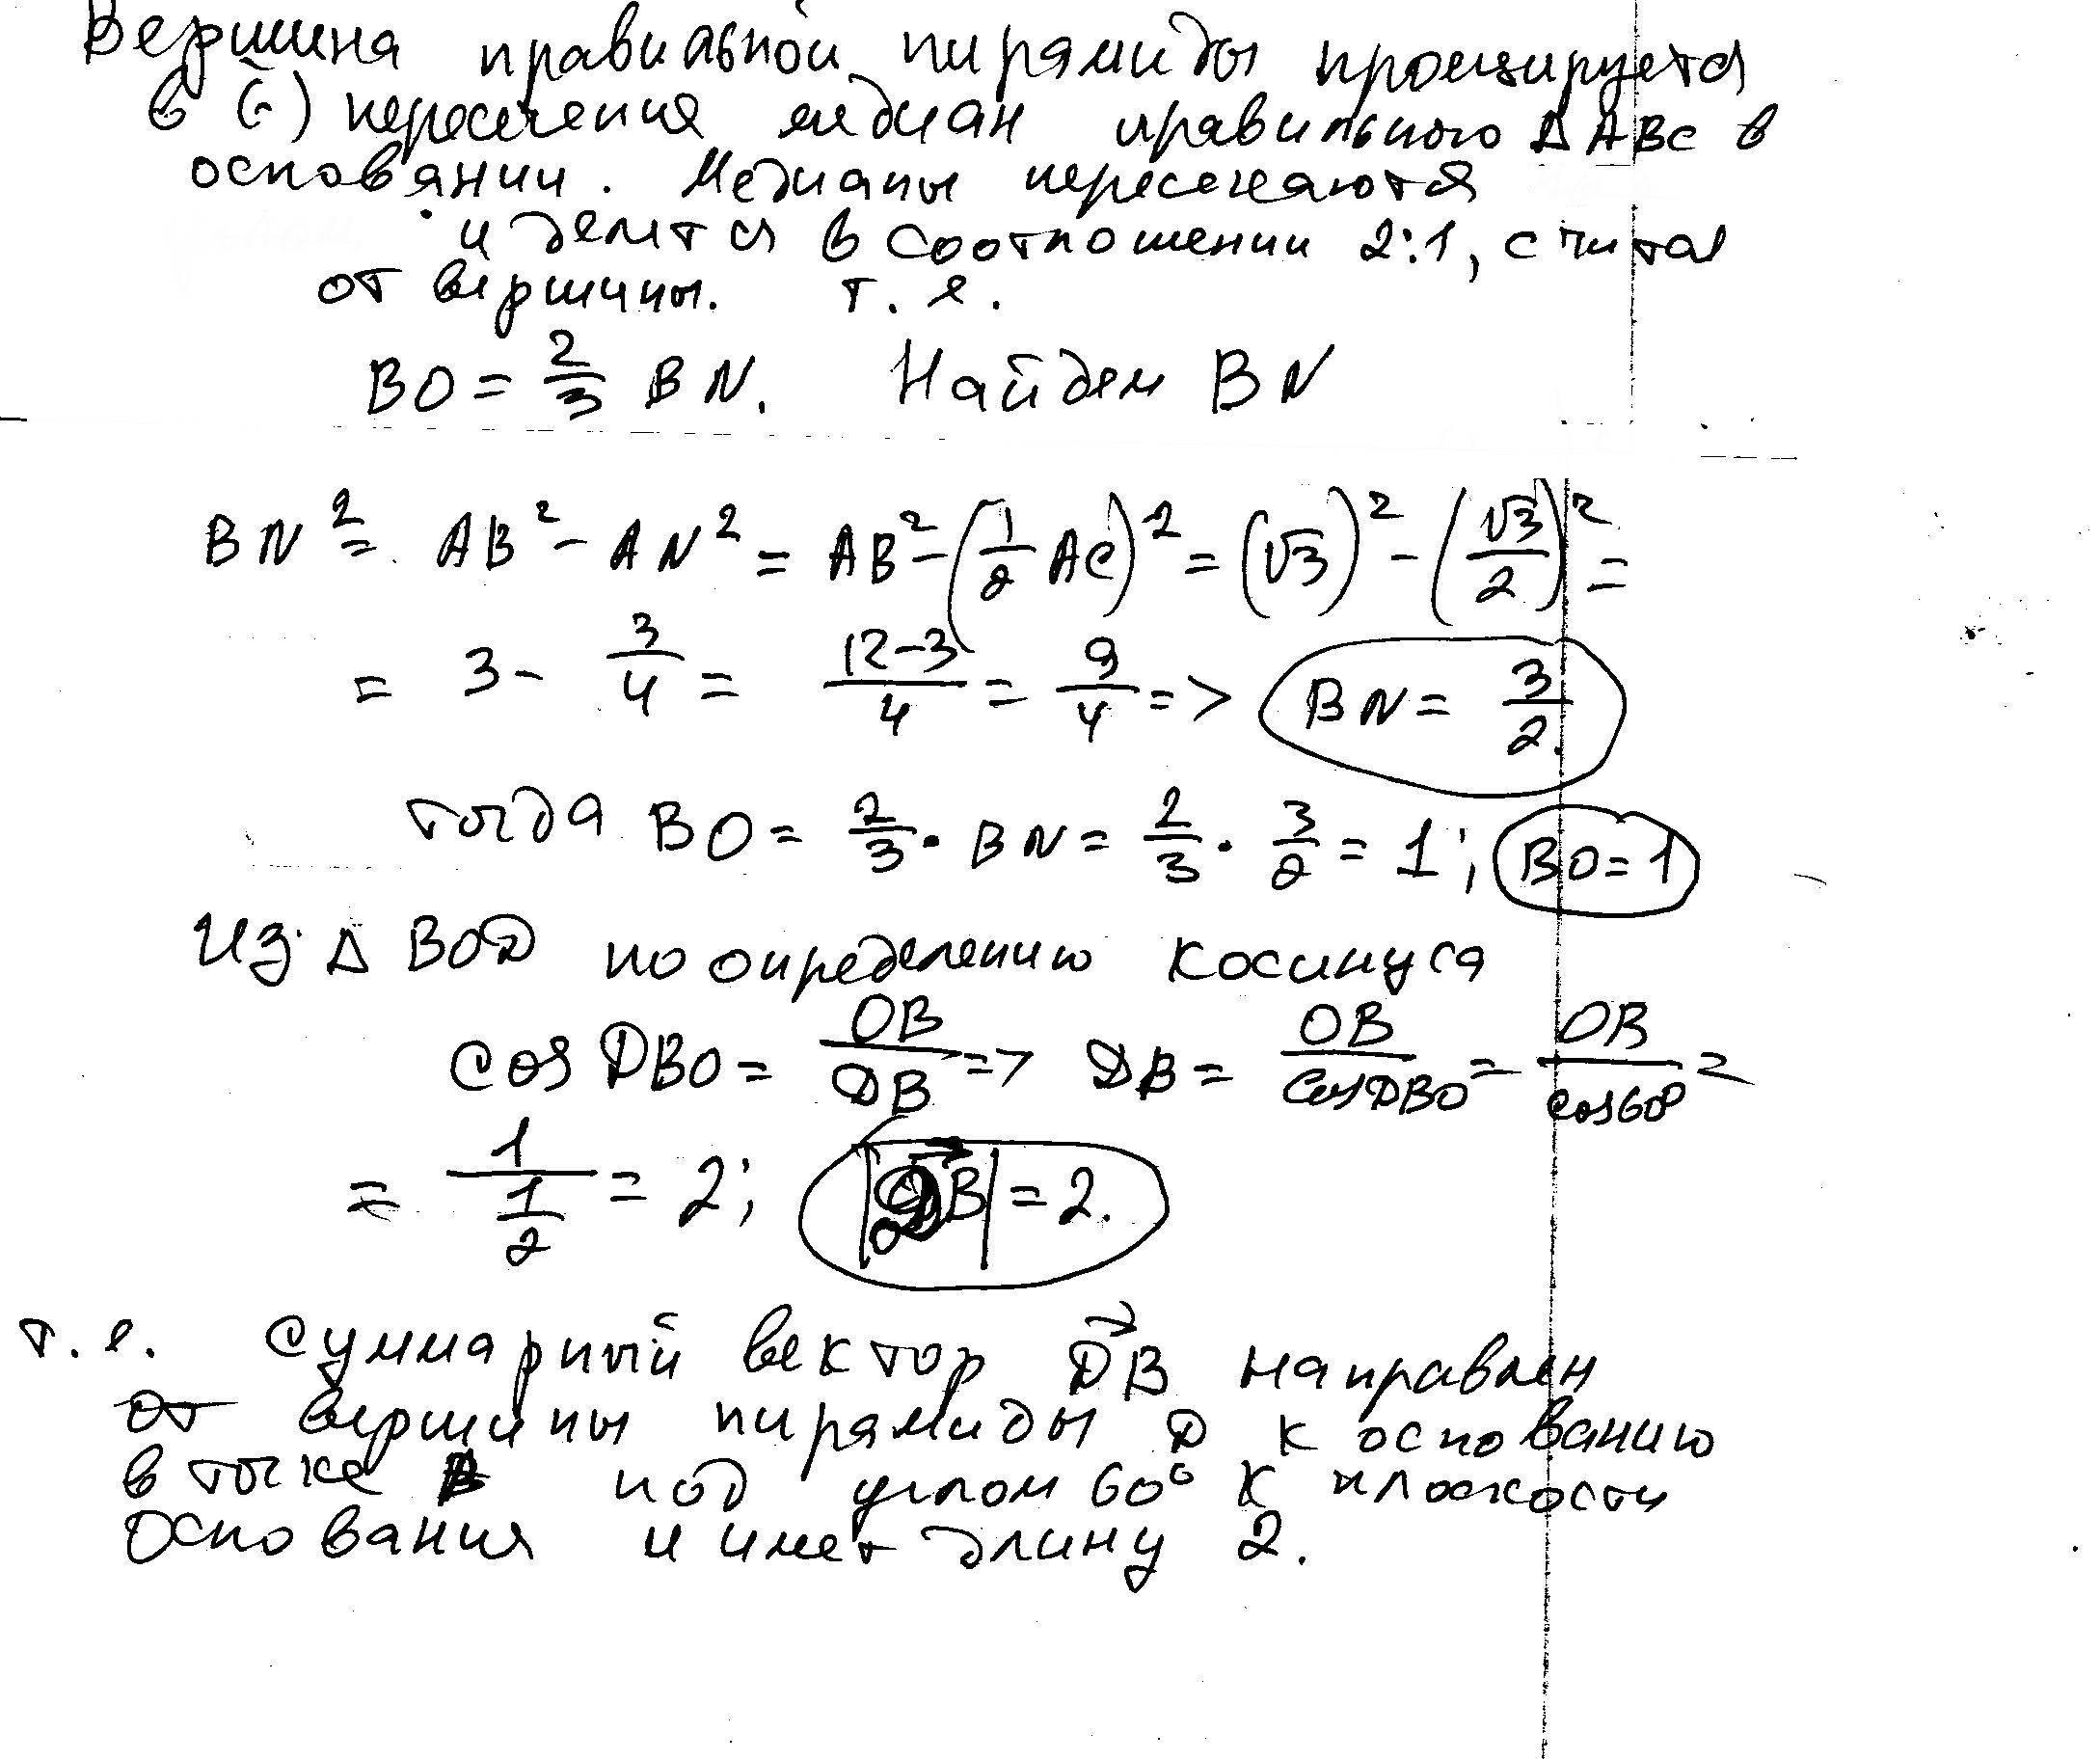 Вершина правильной пирамиды проецируется
в (·) пересечения медиан правильного Δ ABC в
основании. Медианы пересекаются
и делятся в соотношении 2:1, считая
от вершины. т. е.
BO = 2/3 BN. Найдем BN
BN² = AB² - AN² = AB² - (1/2 AC)² = (√3)² - (√3/2)² =
= 3 - 3/4 = (12-3)/4 = 9/4 => BN = 3/2.
тогда BO = 2/3 · BN = 2/3 · 3/2 = 1; BO = 1
Из Δ BOD по определению косинуса
cos DBO = OB/DB => DB = OB/cos DBO = OB/cos 60° =
= 1/(1/2) = 2; |DB| = 2.
т. е. суммарный вектор DB направлен
от вершины пирамиды D к основанию
в точке B под углом 60° к плоскости
основания и имеет длину 2.